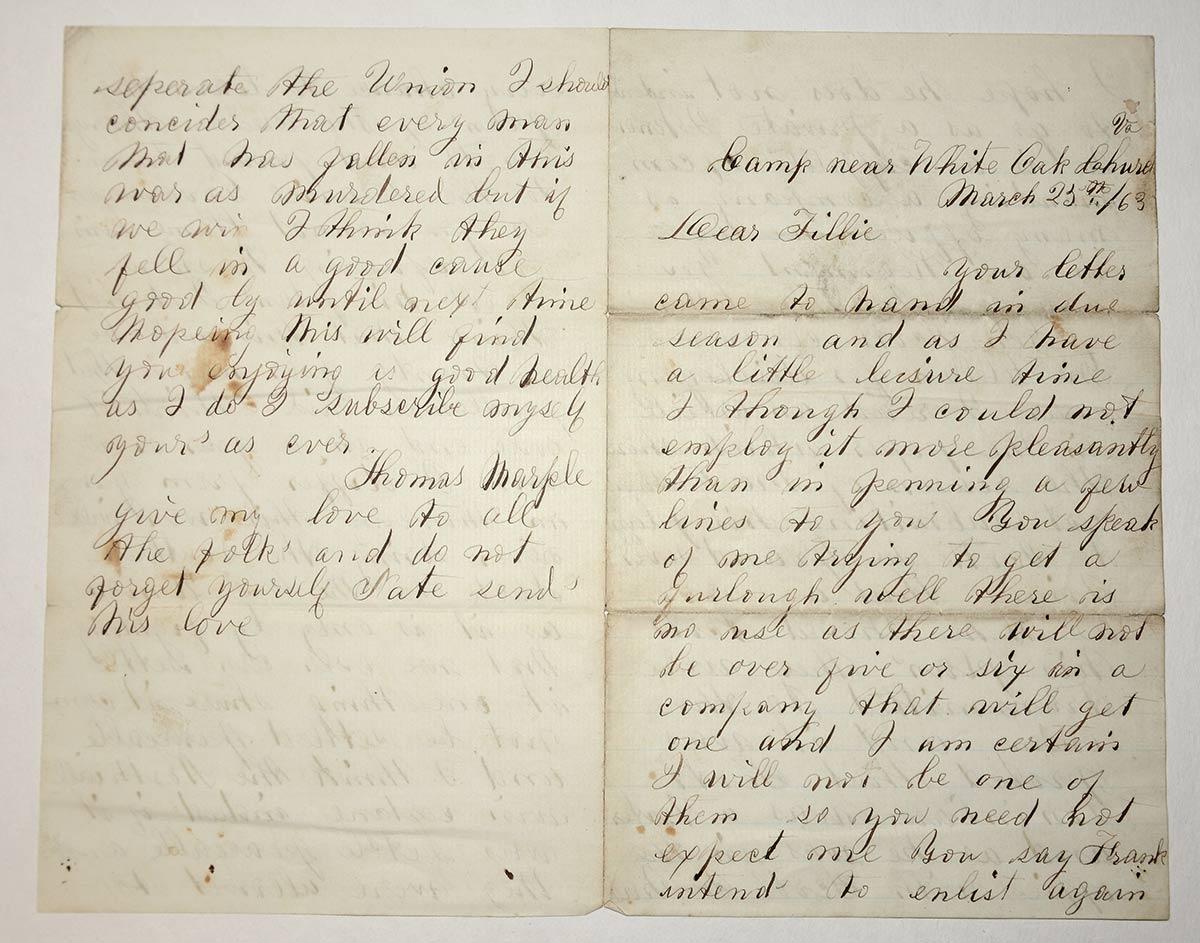 Va
Camp near White Oak Church
March 25th /63
Dear Tillie
Your letter
came to hand in due
season and as I have
a little leisure time
I though I could not
employ it more pleasantly
than in penning a few
lines to you You speak
of me trying to get a
furlough well there is
no use as there will not
be over five or six in a
company that will get
one and I am certain
I will not be one of
them so you need not
expect me You say Frank
intend to enlist again
seperate the Union I should
concider that every man
that has fallen in this
war as murdered but if
we win I think they
fell in a good cause
good by until next time
Hopeing this will find
you enjoying is good health
as I do I subscribe myself
your's as ever
Thomas Marple
give my love to all
the folk's and do not
forget yourself Nate send's
his love